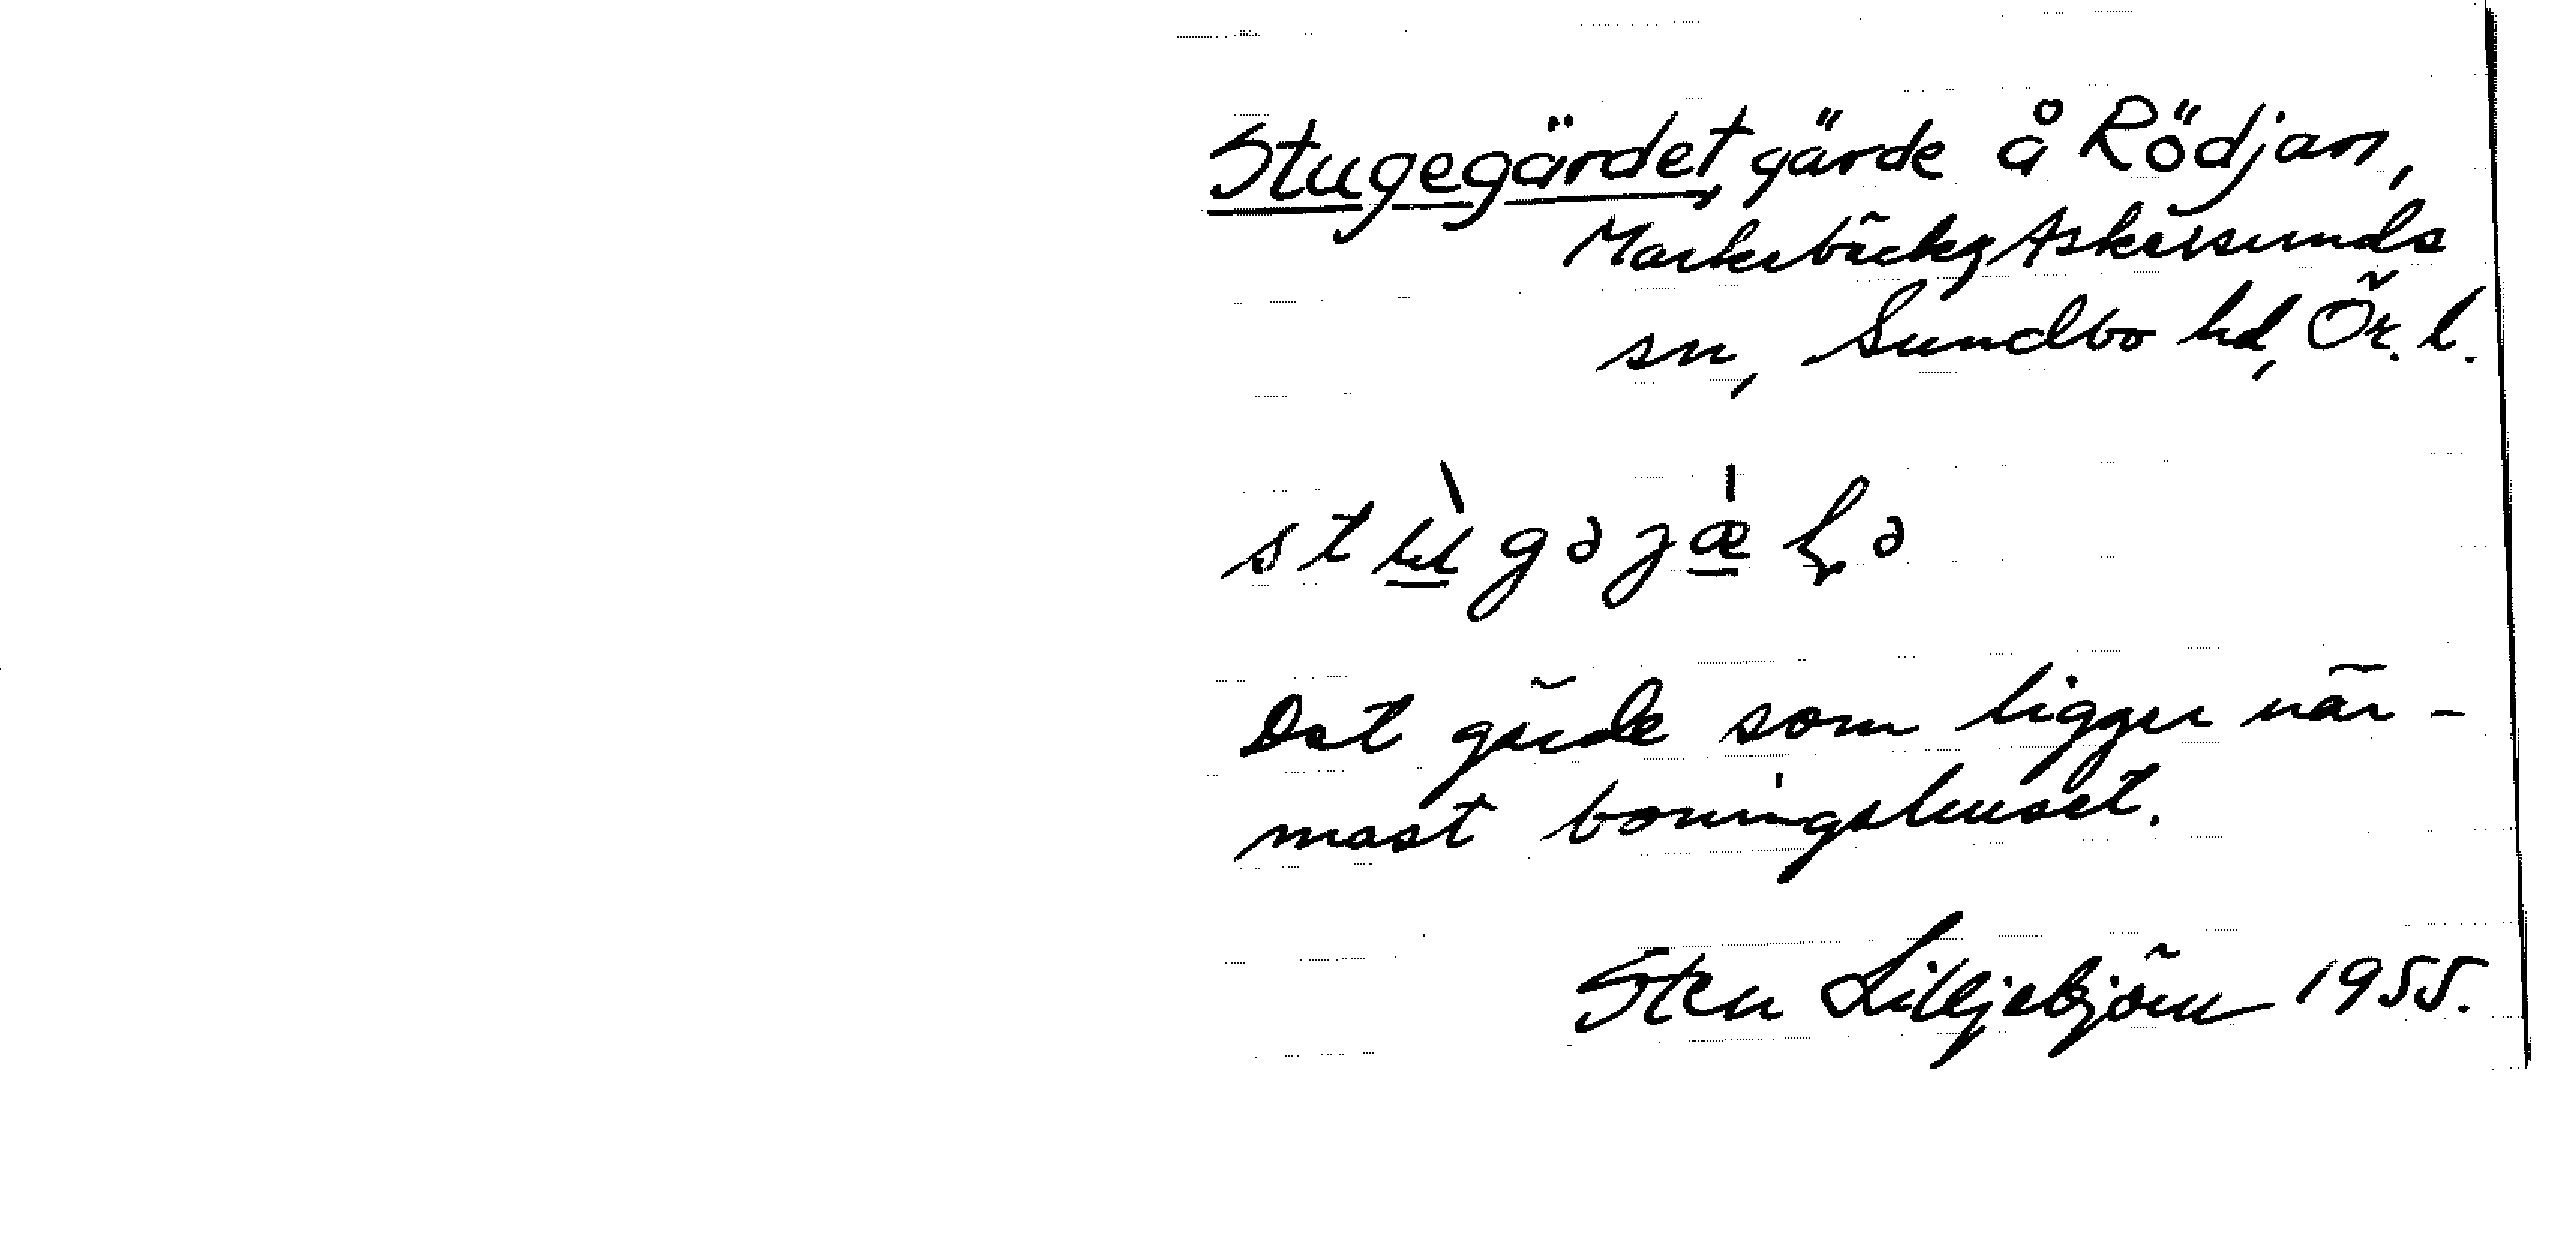 Stugegärdet, gärde å Rödjan,
Markebäck, Askersunds
sn, Sundbo hd, Ör. l.
Det gärde som ligger när-
mast boningshuset.
Sten Liljebjörn 1955.